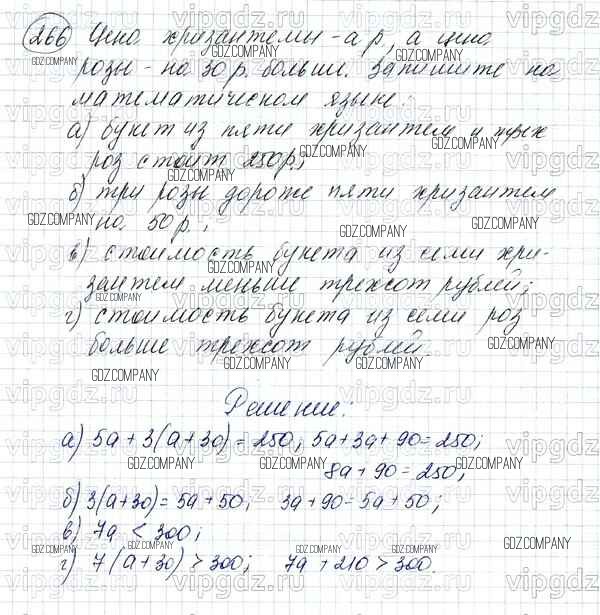 266 Цена хризантемы - а р, а цена
розы - на 30 р. больше. Запишите на
математическом языке:
а) букет из пяти хризантем и трех
роз стоит 250 р.;
б) три розы дороже пяти хризантем
на 50 р.;
в) стоимость букета из семи хри-
зантем меньше трехсот рублей;
г) стоимость букета из семи роз
больше трехсот рублей.
Решение:
а) 5а + 3(а + 30) = 250; 5а + 3а + 90 = 250;
8а + 90 = 250;
б) 3(а + 30) = 5а + 50; 3а + 90 = 5а + 50;
в) 7а < 300;
г) 7(а + 30) > 300; 7а + 210 > 300.